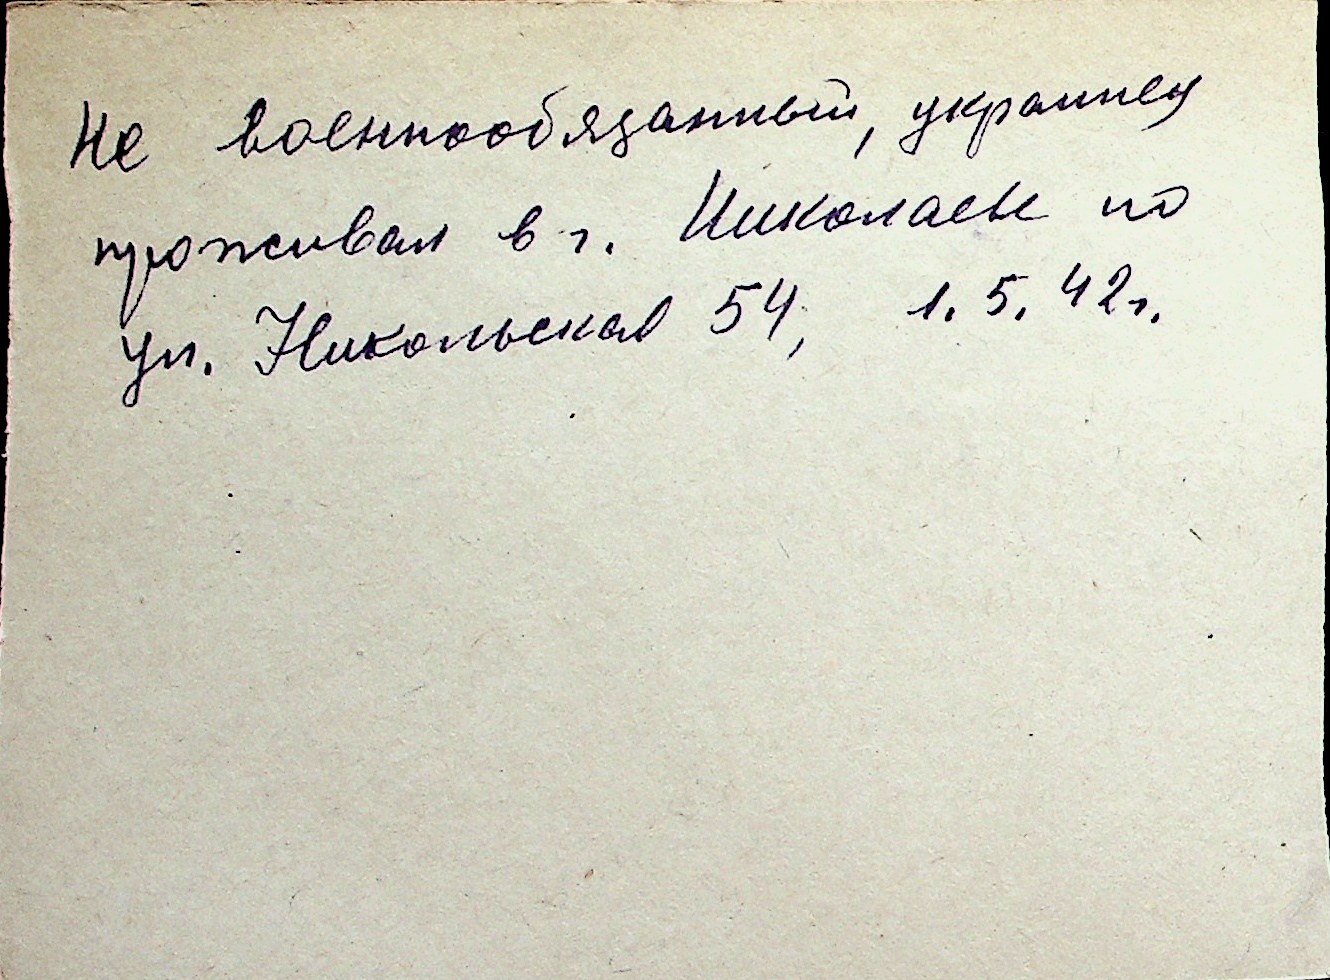 Не военнообязанный, украинец
проживал в г. Николаеве по
ул. Никольская 54, 1.5.42г.